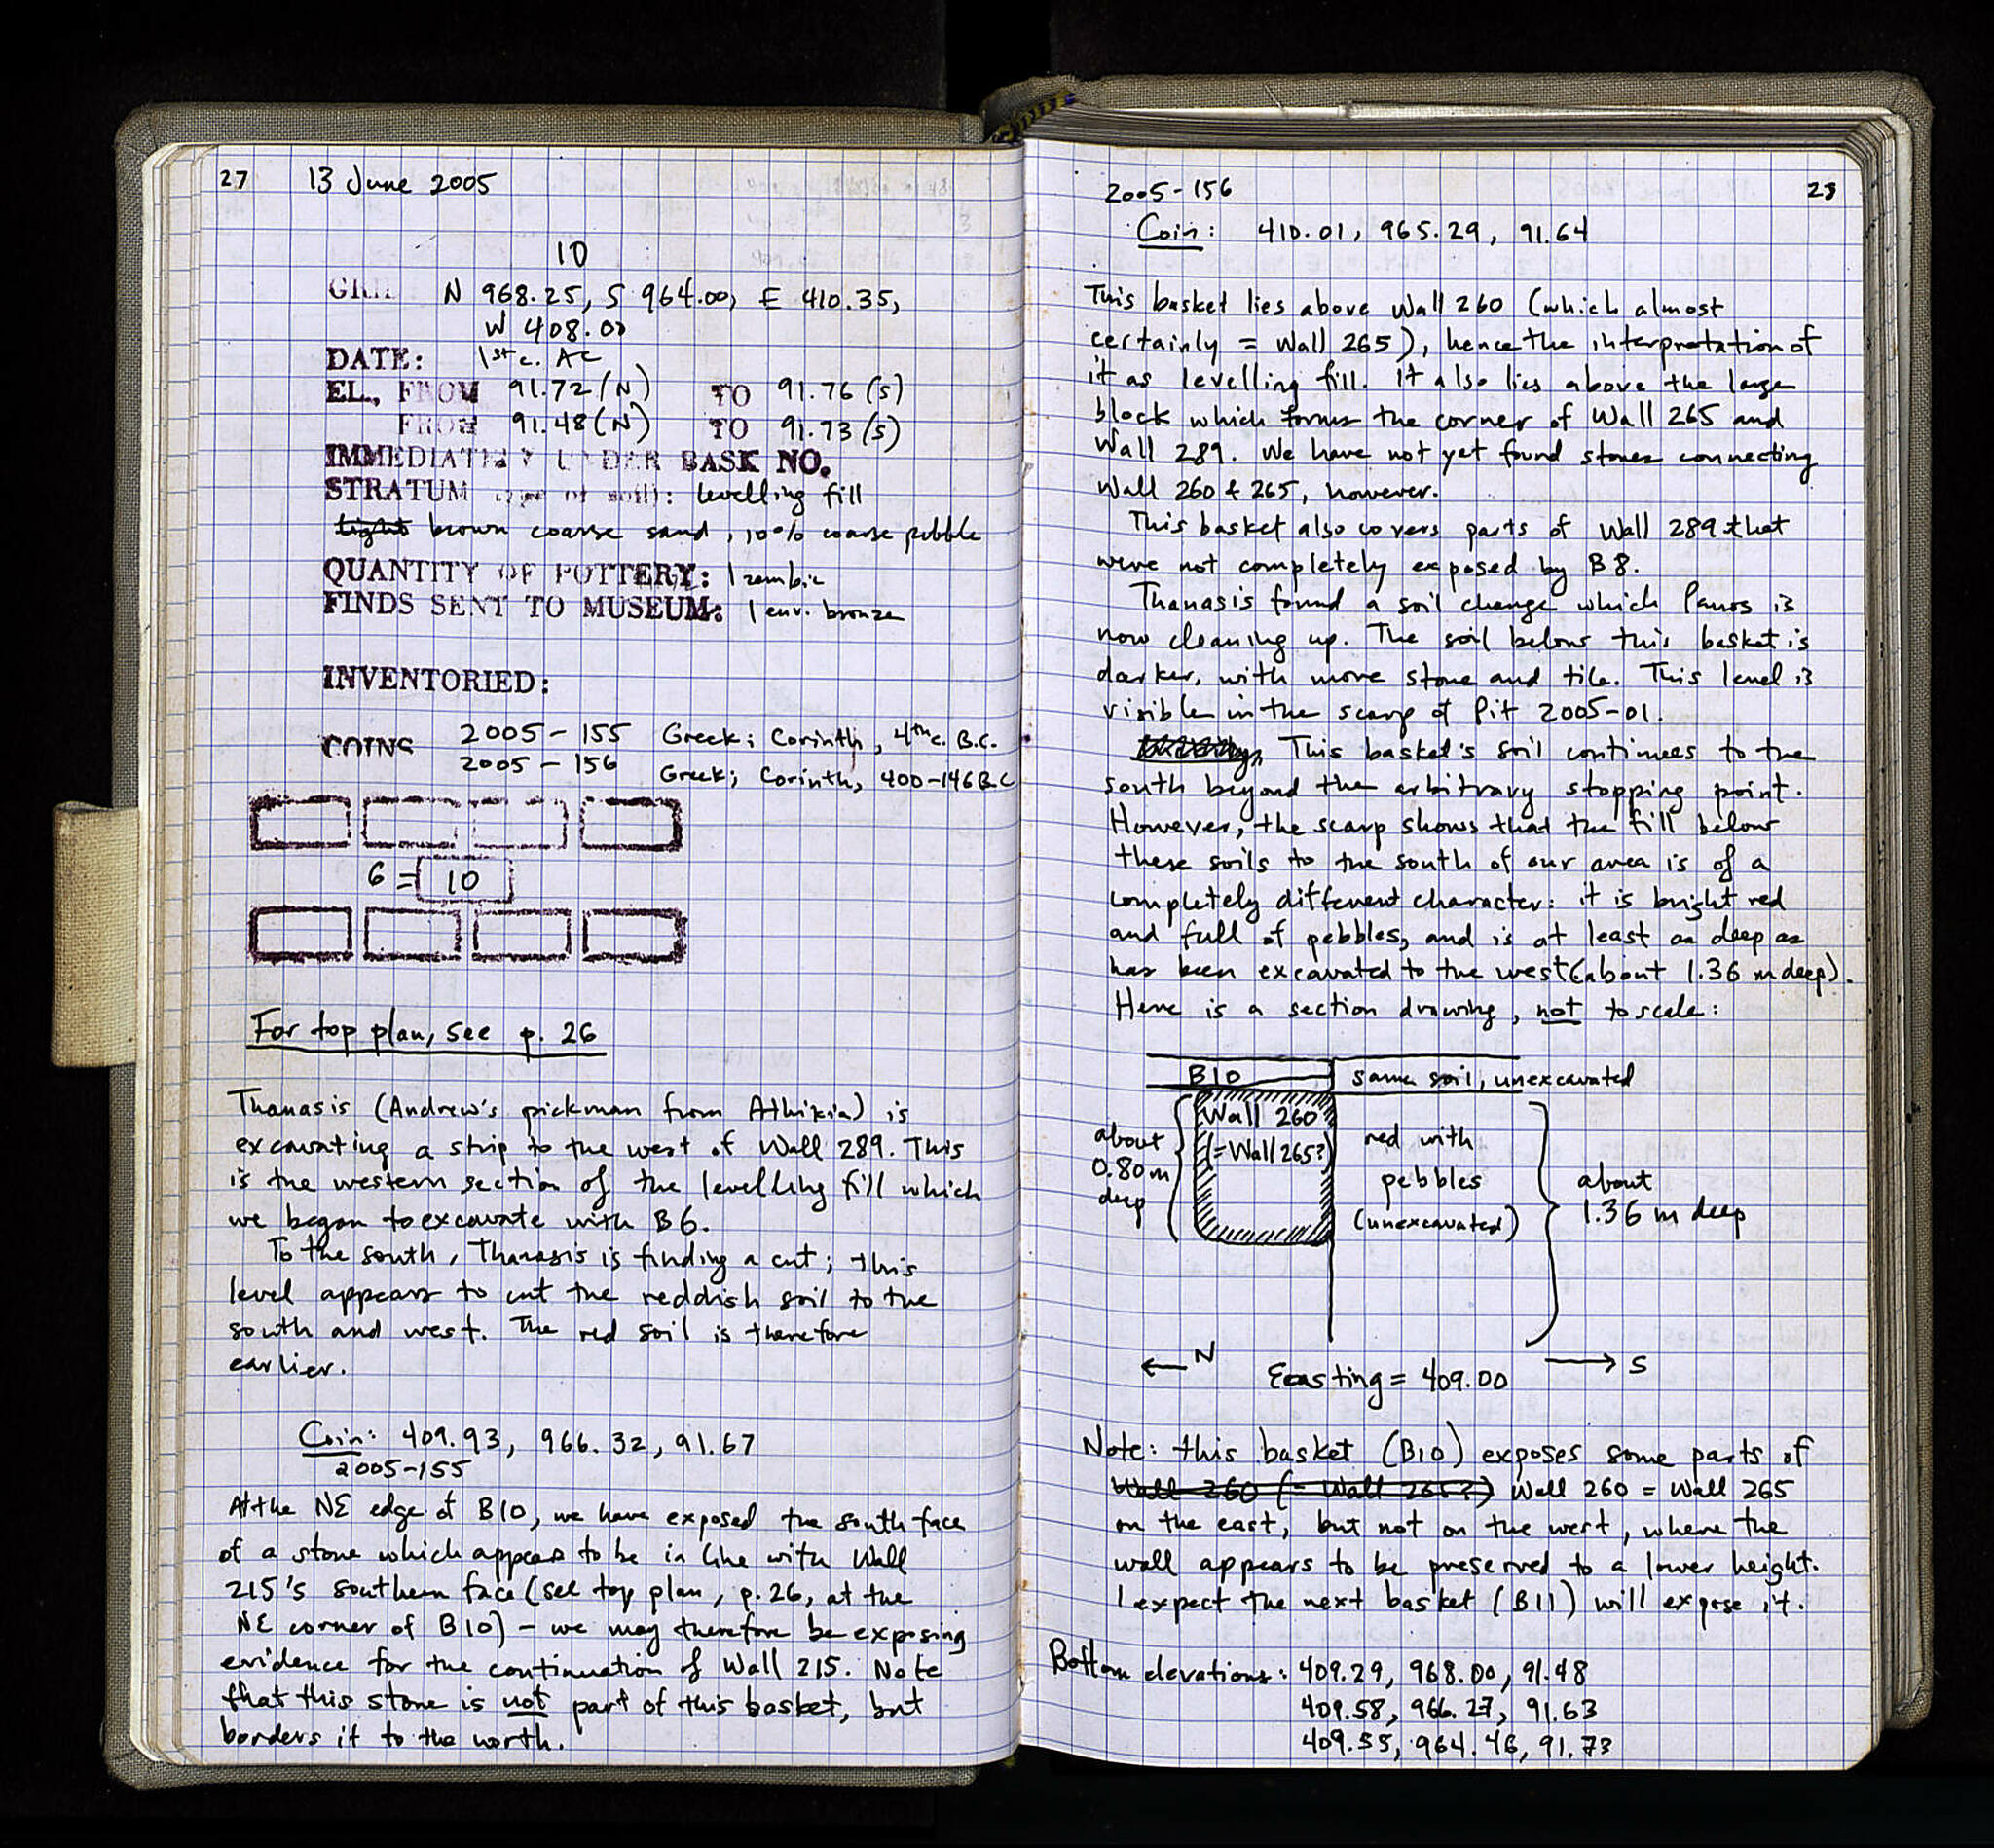 27 13 June 2005
10
GRID N 968.25, S 964.00, E 410.35,
W 408.00
DATE: 1st c. AC
EL., FROM 91.72 (N) TO 91.76 (S)
FROM 91.48 (N) TO 91.73 (S)
IMMEDIATELY UNDER BASK NO.
STRATUM (type of soil): levelling fill
light brown coarse sand, 10% coarse pebble
QUANTITY OF POTTERY: 1 zembic
FINDS SENT TO MUSEUM: 1 env. bronze
INVENTORIED:
COINS 2005-155 Greek; Corinth, 4th c. B.C.
2005-156 Greek; Corinth, 400-146 B.C
6 = 10
For top plan, see p. 26
Thanasis (Andrew's pickman from Athikia) is
excavating a strip to the west of Wall 289. This
is the western section of the levelling fill which
we began to excavate with B6.
To the south, Thanasis is finding a cut; this
level appears to cut the reddish soil to the
south and west. The red soil is therefore
earlier.
Coin: 409.93, 966.32, 91.67
2005-155
At the NE edge of B10, we have exposed the south face
of a stone which appears to be in line with Wall
215's southern face (see top plan, p. 26, at the
NE corner of B10) - we may therefore be exposing
evidence for the continuation of Wall 215. Note
that this stone is not part of this basket, but
borders it to the north.
2005-156 28
Coin: 410.01, 965.29, 91.64
This basket lies above Wall 260 (which almost
certainly = Wall 265), hence the interpretation of
it as levelling fill. It also lies above the large
block which forms the corner of Wall 265 and
Wall 289. We have not yet found stones connecting
Wall 260 & 265, however.
This basket also covers parts of Wall 289 that
were not completely exposed by B8.
Thanasis found a soil change which Panos is
now cleaning up. The soil below this basket is
darker, with more stone and tile. This level is
visible in the scarp of Pit 2005-01.
This basket's soil continues to the
south beyond the arbitrary stopping point.
However, the scarp shows that the fill below
these soils to the south of our area is of a
completely different character: it is bright red
and full of pebbles, and is at least as deep as
has been excavated to the west (about 1.36 m deep).
Here is a section drawing, not to scale:
B10 same soil, unexcavated
about 0.80 m deep
Wall 260
(=Wall 265?)
red with
pebbles
(unexcavated)
about
1.36 m deep
← N Easting = 409.00 → S
Note: this basket (B10) exposes some parts of
Wall 260 (= Wall 265?) Wall 260 = Wall 265
on the east, but not on the west, where the
wall appears to be preserved to a lower height.
I expect the next basket (B11) will expose it.
Bottom elevations: 409.29, 968.00, 91.48
409.58, 966.27, 91.63
409.55, 964.46, 91.73